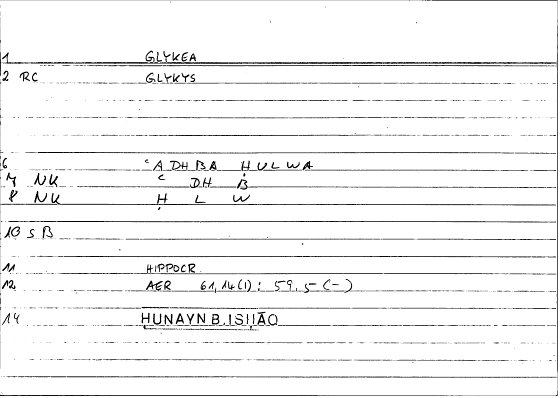 1 GLYKEA
2 RC GLYKYS
6 ʿADHBA ḤULWA
7 NK ʿ DH B
8 NK Ḥ L W
10 S B
11 HIPPOCR.
12 AER 61,14(1): 59.5 (-)
14 ḤUNAYN B. ISḤĀQ